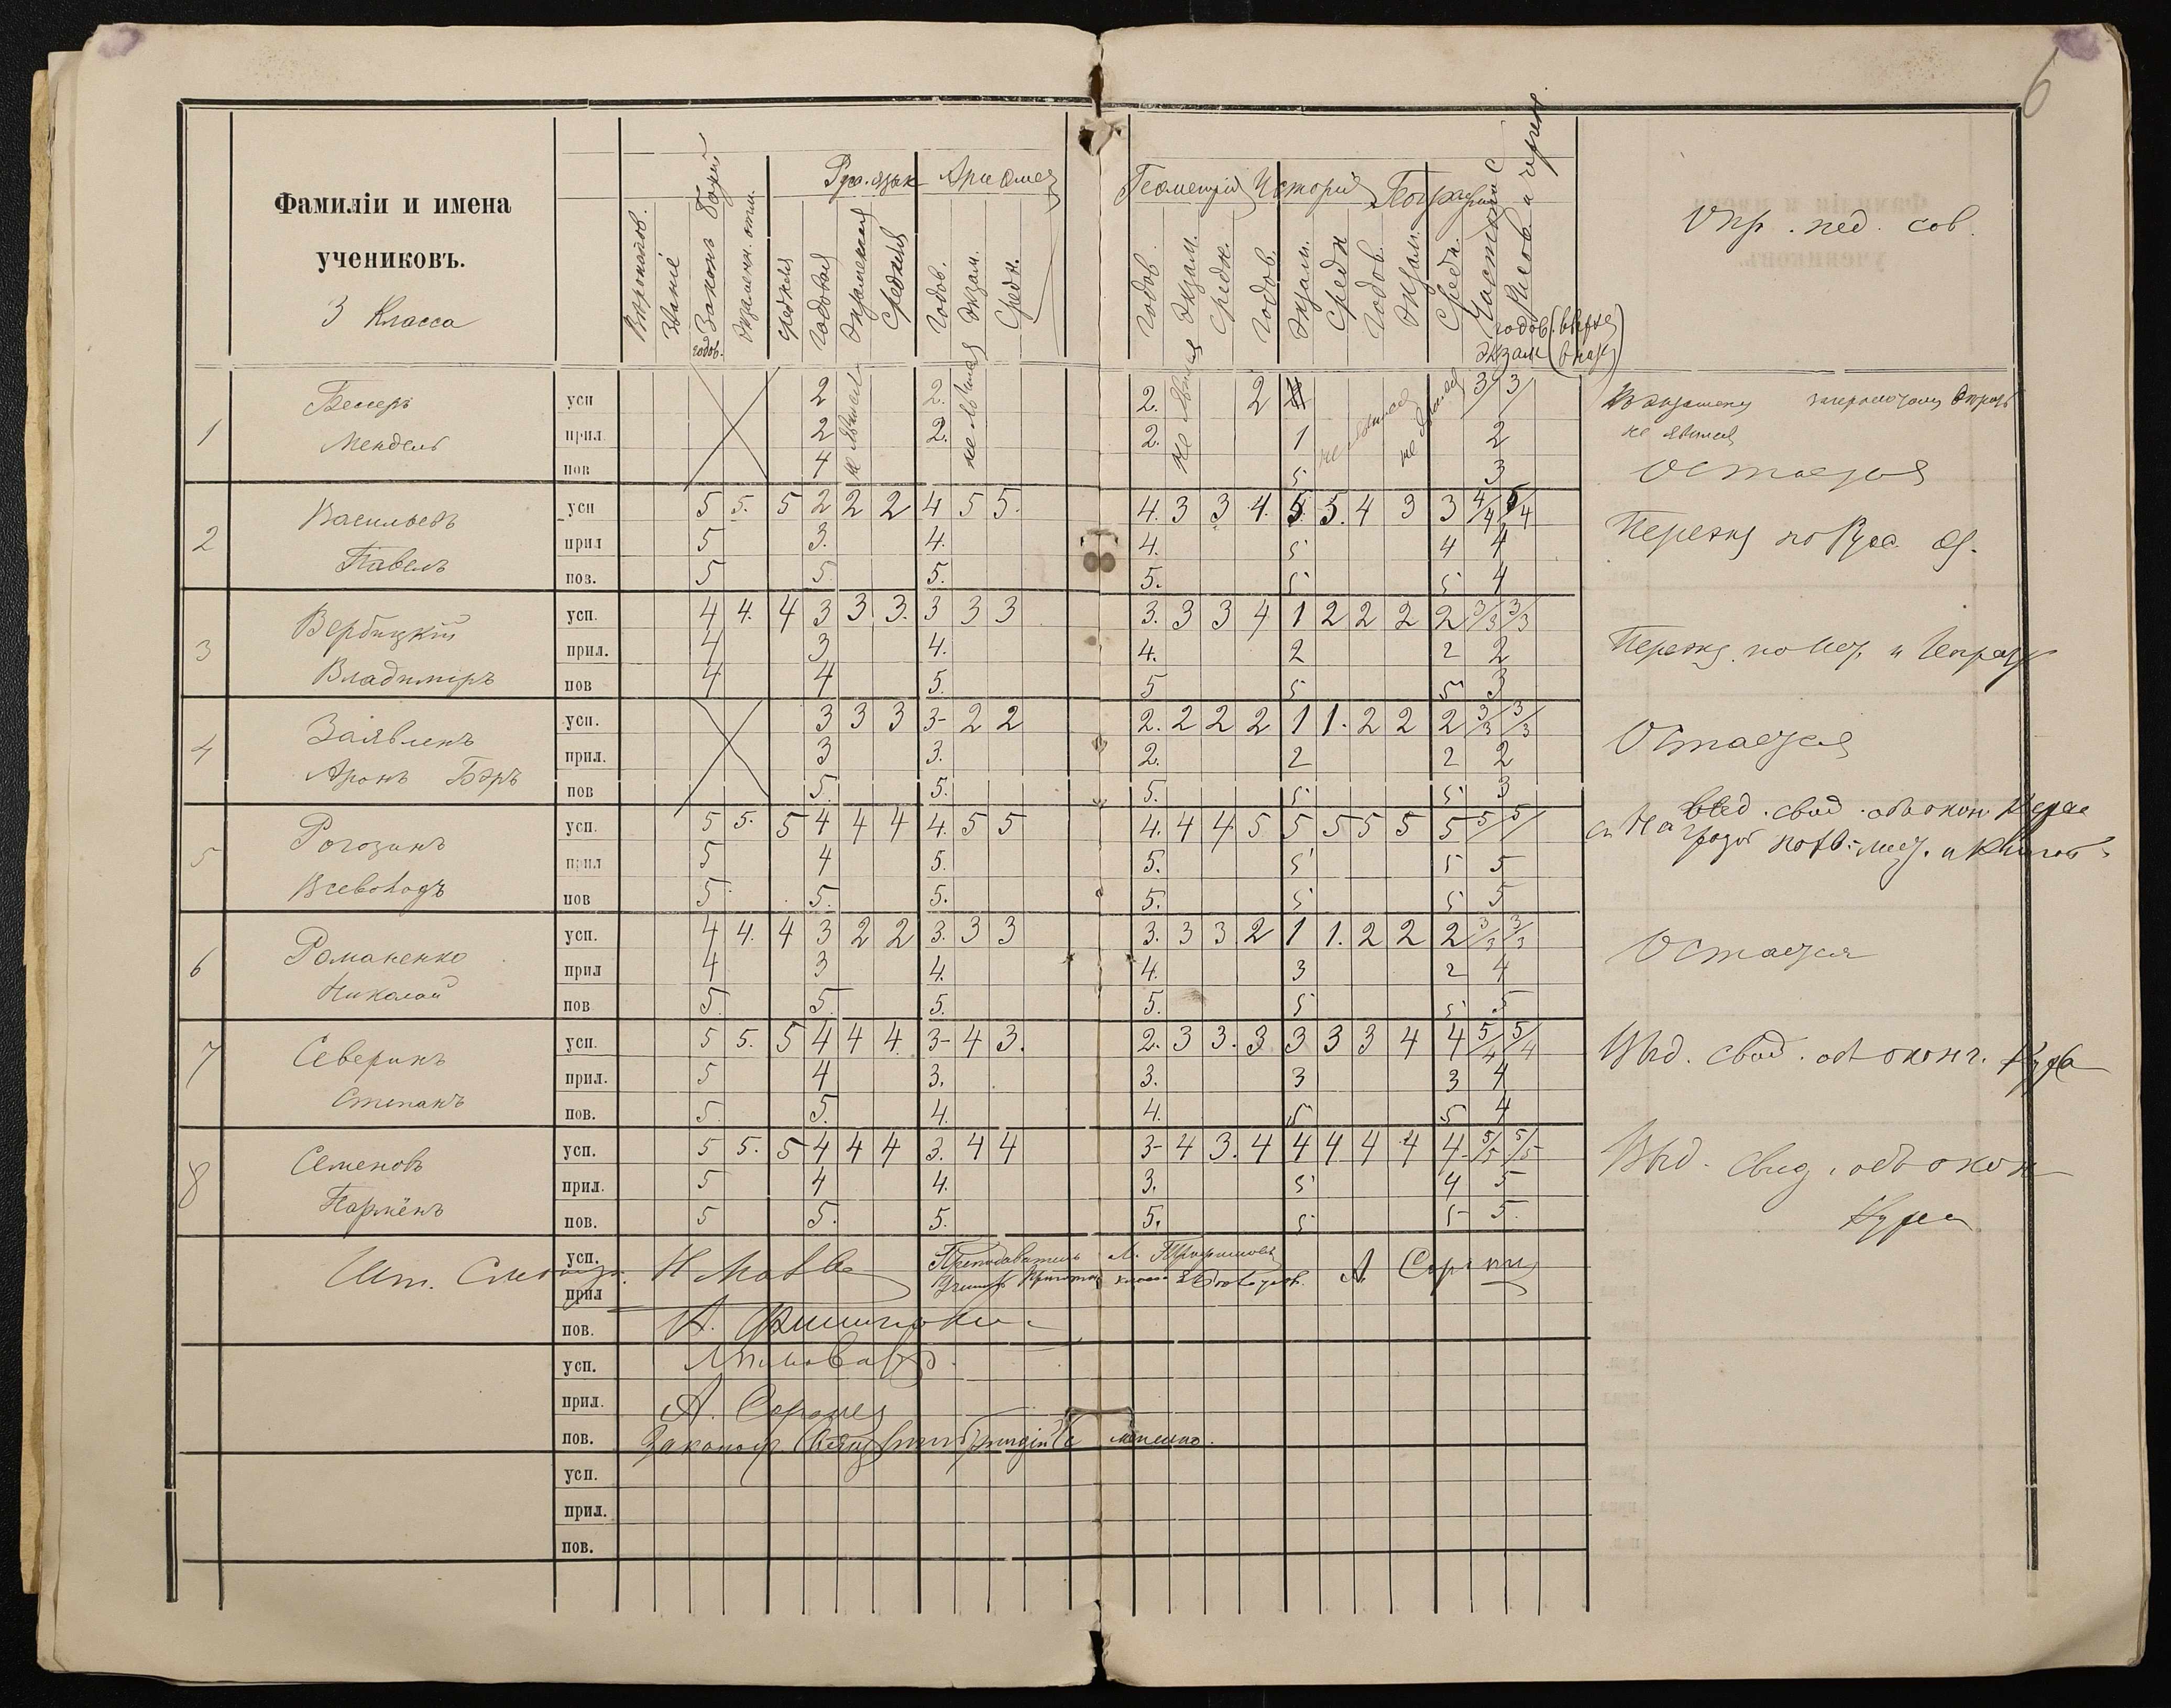 6
Фамиліи и имена
учениковъ.
3 Класса
Вѣроисповѣд.
Званіе
Законъ Божій
годов.
Экзаменн. отм.
средняя
Рус. языкъ
Годовая
Экзаменская
Средняя
Арифмет
Годов.
Экзам.
Средн.
Геометрія
Годов.
Экзам.
Средн.
Исторія
Годов.
Экзам.
Средн
Географія
Годов.
Экзам.
Средн.
Чистописаніе
Рисов и черч
годов. (вверху)
экзам (внизу)
Опр. пед. сов.
1
Мендель
усп 2 не явился 2. не явился 2. не явился 2 не явился не явился 3/ 3/
прил. 2 2. 2. 1 2
пов 4 5 3
Къ экзамену
не явился
Остается
2
Васильевъ
Павелъ
усп 5 5. 5 2 2 2 4 5 5. 4. 3 3 4. 5 5. 4 3 3 4/4 5/4
прил 5 3. 4. 4. 5 4 4
поз. 5 5 5. 5. 5 5 4
Переэкз по Русс. яз.
3
Вербицкій
Владиміръ
усп. 4 4. 4 3 3 3. 3 3 3 3. 3 3 4 1 2 2 2 2 3/3 3/3
прил. 4 3 4. 4. 2 2 2
пов 4 4 5. 5 5 5 3
Переэкз. по
4
Заявленъ
Аронъ Бэръ
усп. 3 3 3 3- 2 2 2. 2 2 2 1 1. 2 2 2 3/3 3/3
прил. 3 3. 2. 2 2 2
пов 5. 5. 5. 5 5 3
Остается
5
Рогозинъ
Всеволодъ
усп. 5 5. 5 4 4 4 4. 5 5 4. 4 4 5 5 5 5 5 5 5/ 5/
прил 5 4 5. 5. 5 5 5
пов 5. 5. 5. 5. 5 5 5
Выд. свид. объ окон. Курса
6
Романенко
Николай
усп. 4 4. 4 3 2 2 3. 3 3 3. 3 3 2 1 1. 2 2 2 3/3 3/3
прил 4 3 4. 4. 3 2 4
пов 5. 5. 5. 5. 5 5 5
Остается
7
Северинъ
Степанъ
усп. 5 5. 5 4 4 4. 3- 4 3. 2. 3 3. 3 3 3 3 4 4 5/4 5/4
прил. 5 4 3. 3. 3 3 4
пов. 5. 5. 4. 4. 5 5 4
Выд. свид. объ оконч. Курса
8
Семеновъ
Парменъ
усп. 5 5. 5 4 4 4 3. 4 4 3- 4 3. 4 4 4 4 4 4. 5/5 5/5
прил. 5 4 4. 3. 5 4 5
пов. 5 5. 5. 5. 5 5 5.
Выд. свид. объ окон
Курса
усп.
Преподаватель
прил
пов.
усп.
прил.
А. Сорокинъ
пов.
усп.
прил.
пов.